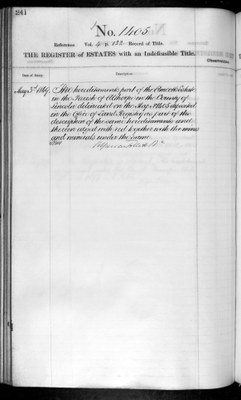 241
No. 1405
Reference Vol. 4 Record of Title.
THE REGISTER OF ESTATES with an Indefeasible Title.
Date of Entry. Description. Observations.
May 3rd 1867 The hereditaments part of the Estate
in the Parish of in the County of
Lincoln delineated on the Map deposited
in the Office of Land Registry as part of the
description of the same hereditaments and
therein edged with red together with the mines
and minerals under the same.